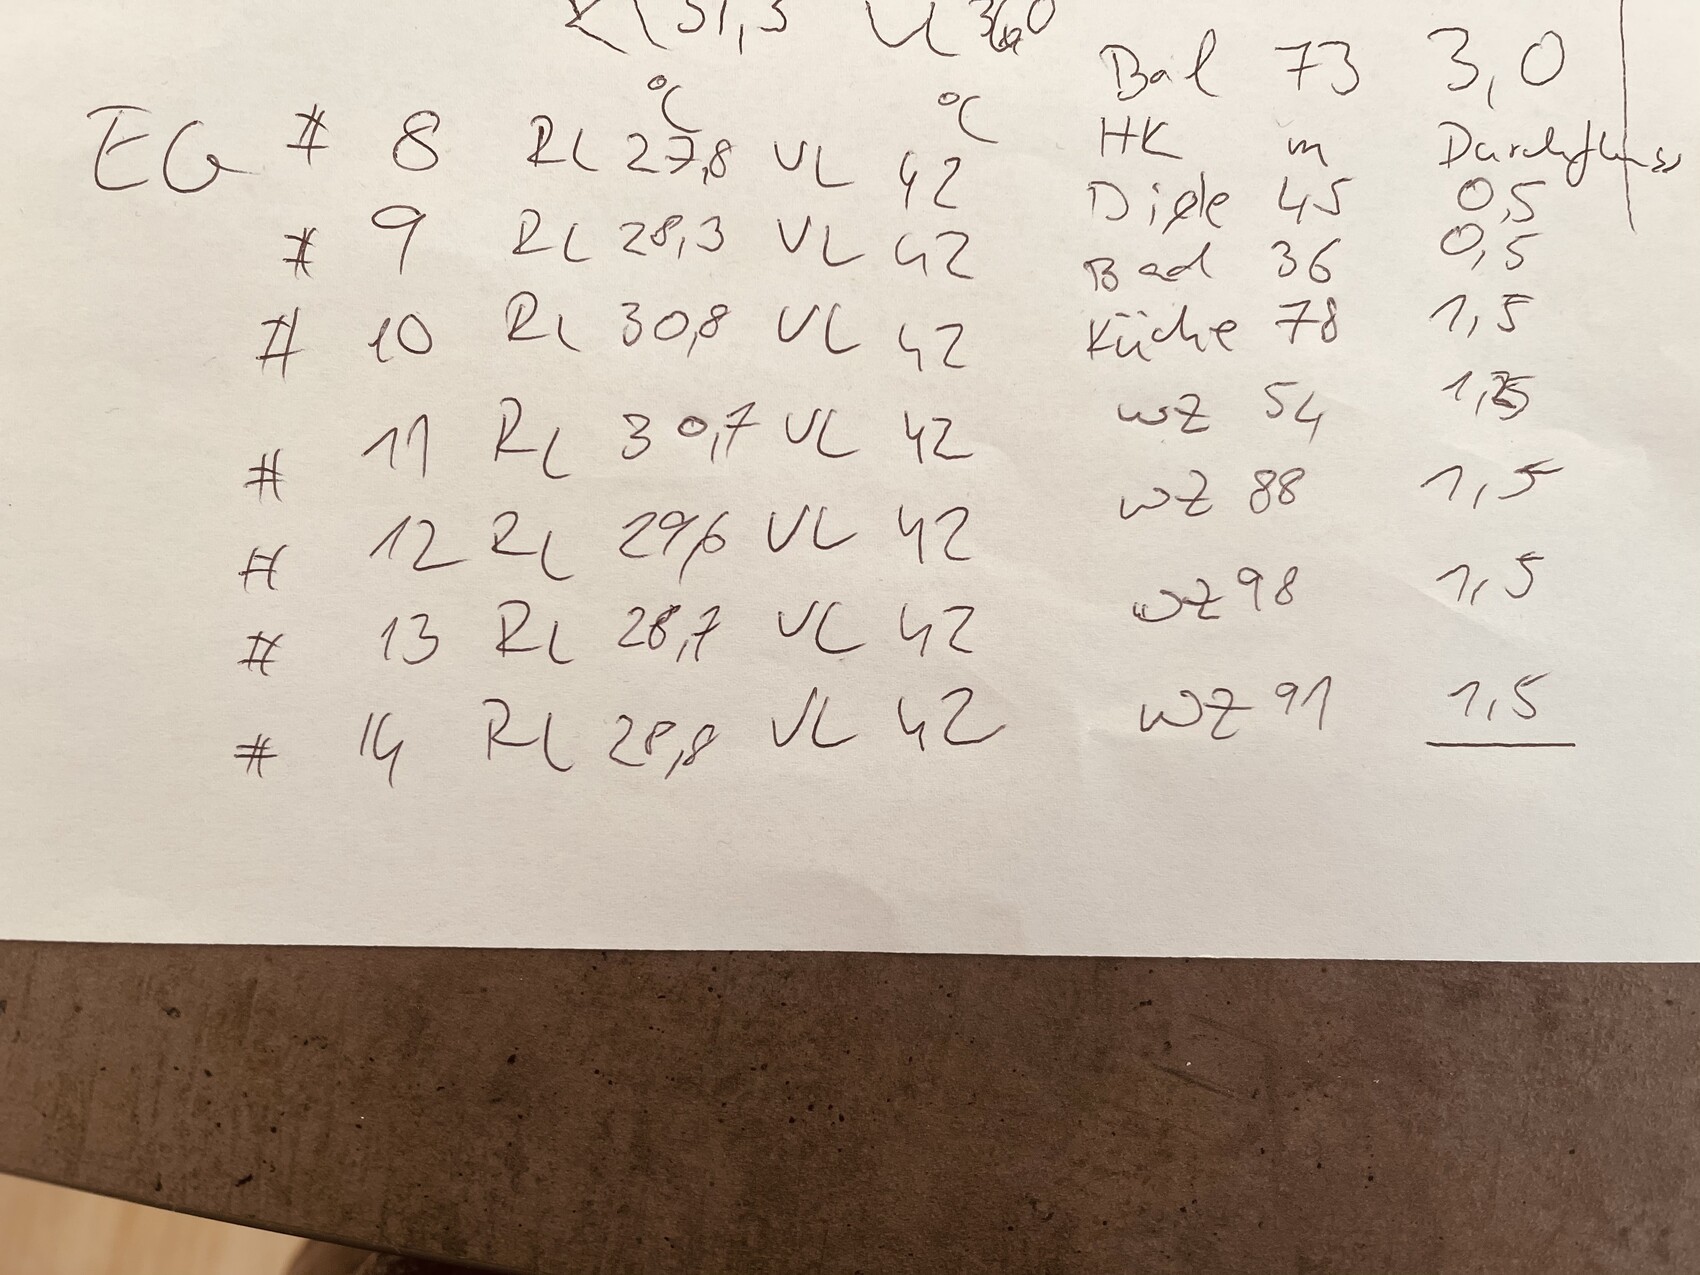 RL 31,3 VL 36,0
Bad 73 3,0
°C °C HK m Durchfluss
EG # 8 RL 27,8 VL 42 Diele 45 0,5
# 9 RL 28,3 VL 42 Bad 36 0,5
# 10 RL 30,8 VL 42 Küche 78 1,5
# 11 RL 30,7 VL 42 WZ 54
# 12 RL 29,6 VL 42 WZ 88 1,5
# 13 RL 28,7 VL 42 WZ 98 1,5
# 14 RL 28,8 VL 42 WZ 91 1,5